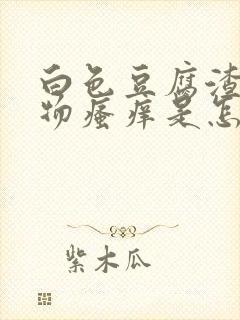 白色豆腐渣
物瘙痒是怎
紫木瓜